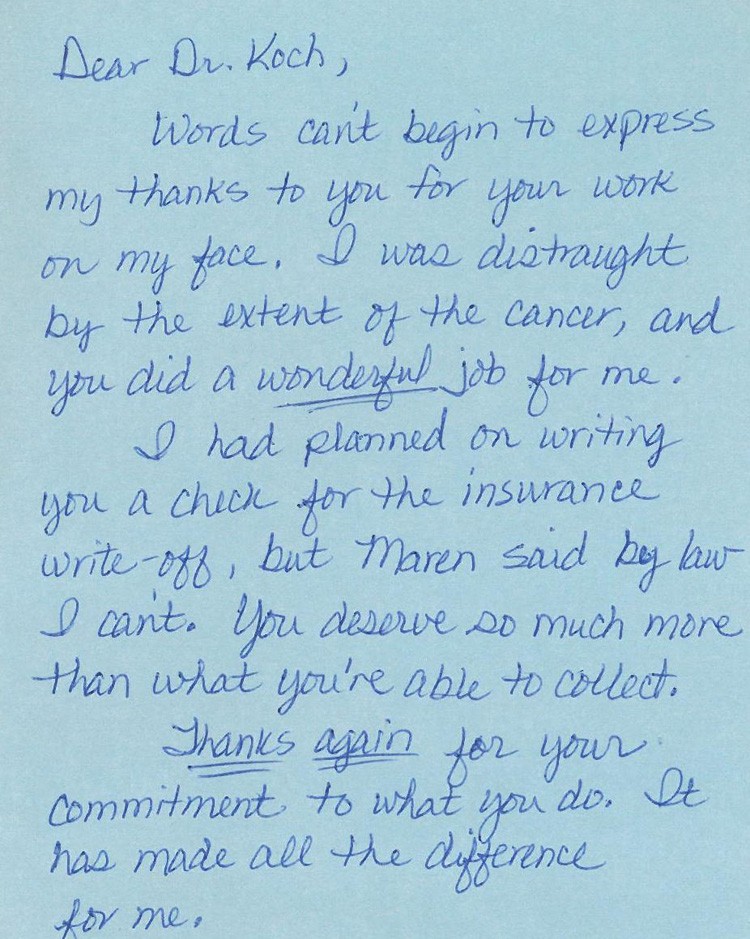 Dear Dr. Koch,
Words can't begin to express
my thanks to you for your work
on my face. I was distraught
by the extent of the cancer, and
you did a wonderful job for me.
I had planned on writing
you a check for the insurance
write-off, but Maren said by law
I can't. You deserve so much more
than what you're able to collect.
Thanks again for your
commitment to what you do. It
has made all the difference
for me.